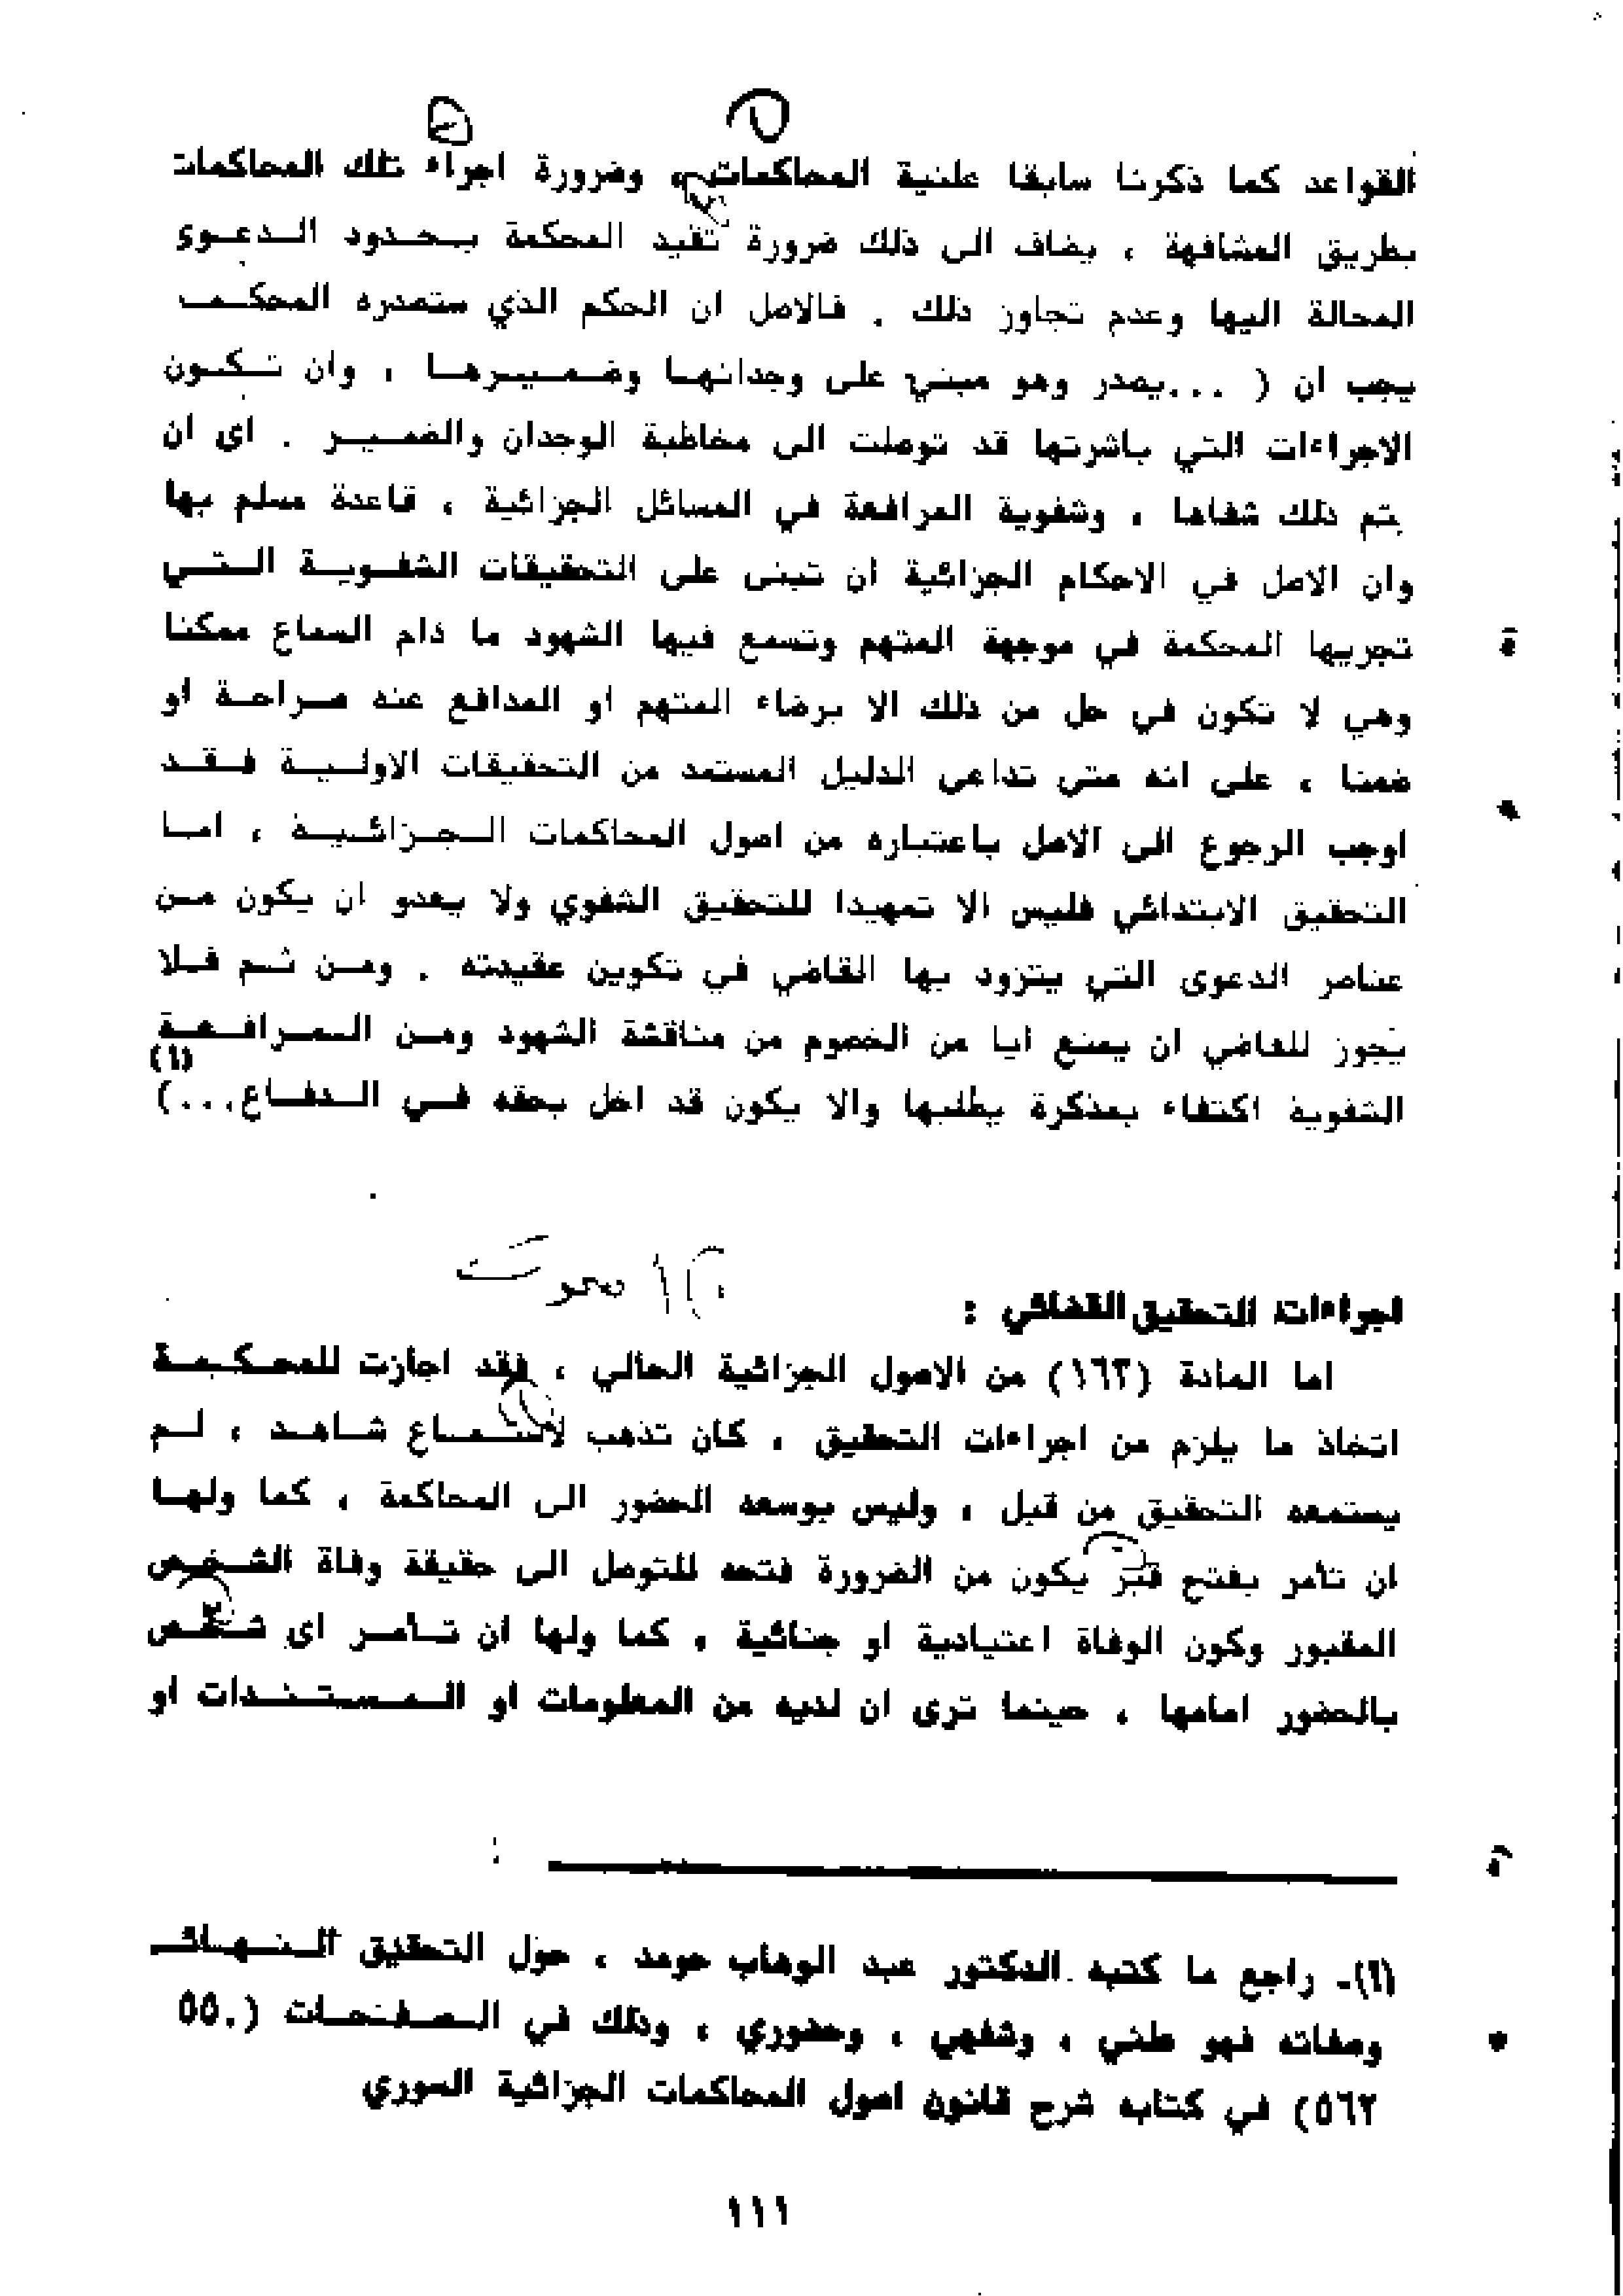 القواعد كما ذكرنا سابقا علنية المحاكمات ، وضرورة اجراء تلك المحاكمات
بطريق المشافهة ، يضاف الى ذلك ضرورة تقيد المحكمة بـحـدود الـدعـوى
المحالة اليها وعدم تجاوز ذلك . فالاصل ان الحكم الذي ستصدره المحكـمـ
يجب ان ( ...يصدر وهو مبني على وجدانهـا وضـمـيـرهـا ، وان تـكـون
الاجراءات التي باشرتها قد توصلت الى مخاطبة الوجدان والضمـيـر . اى ان
يتم ذلك شفاها ، وشفوية المرافعة في المسائل الجزائية ، قاعدة مسلم بها
وان الاصل في الاحكام الجزائية ان تبنى على التحقيقات الشفـويـة الـتـي
تجريها المحكمة في موجهة المتهم وتسمع فيها الشهود ما دام السماع ممكنا
وهي لا تكون في حل من ذلك الا برضاء المتهم او المدافع عنه صـراحـة او
ضمنا ، على انه متى تداعى الدليل المستمد من التحقيقات الاولـيـة فـقـد
اوجب الرجوع الى الاصل باعتباره من اصول المحاكمات الـجـزائـيـة ، امـا
التحقيق الابتدائي فليس الا تمهيدا للتحقيق الشفوي ولا يعدو ان يكون مـن
عناصر الدعوى التي يتزود بها القاضي في تكوين عقيدته . ومـن ثـم فـلا
يجوز للقاضي ان يمنع ايا من الخصوم من مناقشة الشهود ومـن الـمـرافـعـة
الشفوية اكتفاء بمذكرة يطلبها والا يكون قد اخل بحقه فـي الـدفـاع...) (١)
اجراءات التحقيق القضائي :
اما المادة (١٦٣) من الاصول الجزائية الحالي ، فقد اجازت للمحـكـمـة
اتخاذ ما يلزم من اجراءات التحقيق ، كان تذهب لاستـمـاع شـاهـد ، لـم
يستمعه التحقيق من قبل ، وليس بوسعه الحضور الى المحاكمة ، كما ولهـا
ان تأمر بفتح قبر يكون من الضرورة فتحه للتوصل الى حقيقة وفاة الشـخـص
المقبور وكون الوفاة اعتيادية او جنائية ، كما ولها ان تـأمـر اى شـخـص
بالحضور امامها ، حينما ترى ان لديه من المعلومات او الـمـسـتـنـدات او
(١)ـ راجع ما كتبه الدكتور عبد الوهاب حومد ، حول التحقيق الـنـهـائـ
وصفاته فهو علني ، وشفهي ، وحضوري ، وذلك في الـصـفـحـات (٥٥٠
٥٦٢) في كتابه شرح قانون اصول المحاكمات الجزائية السوري
١١١